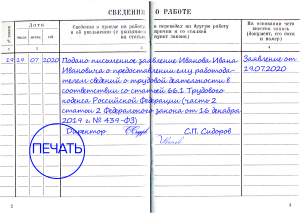 СВЕДЕНИЯ О РАБОТЕ
Дата
Сведения о приеме на работу, о переводах на другую работу
и об увольнении (с указанием причин и со ссылкой
на статью, пункт закона)
На основании чего
внесена запись
(документ, его дата
и номер)
№ записи
число
месяц
год
1
2
3
4
19 29 07 2020 Подано письменное заявление Иванова Ивана Заявление от
Ивановича о предоставлении ему работода- 19.07.2020
телем сведений о трудовой деятельности в
соответствии со статьей 66.1 Трудового
кодекса Российской Федерации (часть 2
статьи 2 Федерального закона от 16 декабря
2019 г. № 439-ФЗ)
Директор С.П. Сидоров
ПЕЧАТЬ
2
3